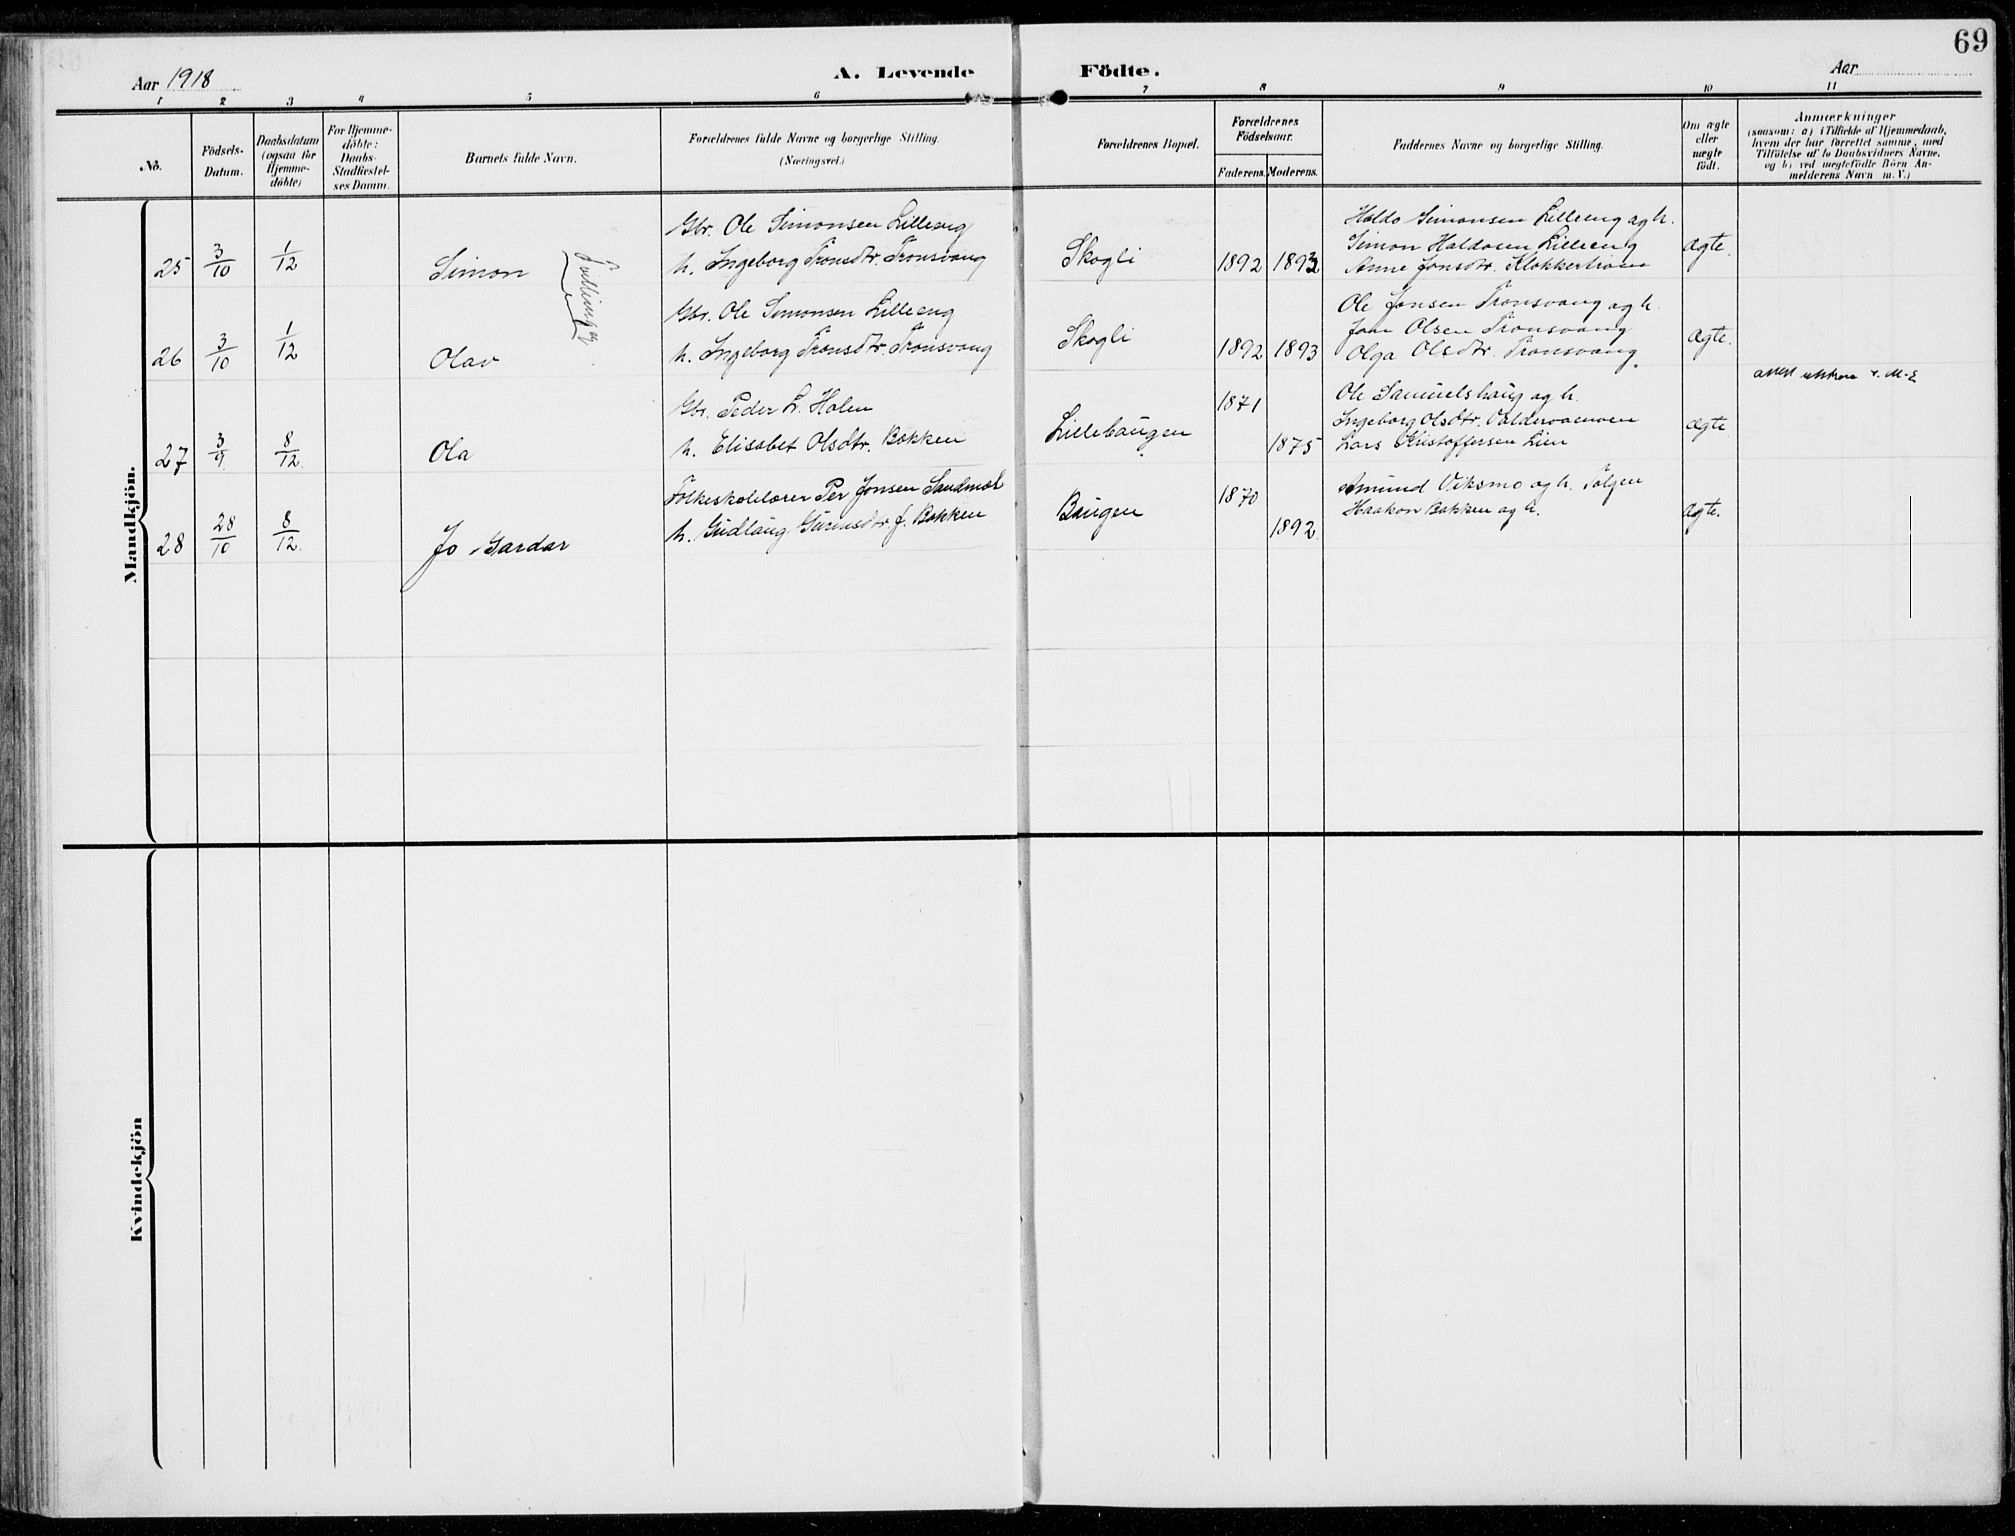 69
Aar 1918
A. Levende Födte.
Aar
1 2 3 4 5 6 7 8 9 10 11
No.
Födsels-
Datum.
Daabsdatum
(ogsaa for
Hjemme-
döbte)
For Hjemme-
döbte:
Daabs-
Stadfæstel-
ses Datum.
Barnets fulde Navn.
Forældrenes fulde Navne og borgerlige Stilling.
(Næringsvei.)
Forældrenes Bopæl.
Forældrenes
Födselsaar.
Faderens. Moderens.
Faddernes Navne og borgerlige Stilling.
Om ægte
eller
uægte
födt.
Anmærkninger
(saasom: a) i Tilfælde af Hjemmedaab,
hvem der har forrettet samme, med
Tilföielse af to Daabsvidners Navne,
og b) ved uægtefödte Börn An-
melderens Navn m. V.)
Mandkjön.
25 3/10 1/12 Simon
Tvillinger
Gbr. Ole Simonsen Lilleeng
h. Ingeborg Tronsdtr. Tronsvang
Skogli
1892 1893
Haldo Simonsen Lilleeng og h.
Simon Haldosen Lilleeng
Anne Jonsdtr. Klokkertrøen
ægte.
26 3/10 1/12 Olav
Gbr. Ole Simonsen Lilleeng
h. Ingeborg Tronsdtr. Tronsvang
Skogli
1892 1893
Ole Jonsen Tronsvang og h.
Jon Olsen Tronsvang
Olga Olsdtr. Tronsvang.
ægte.
27 3/9 8/12 Ola
Gbr. Peder L. Holen
h. Elisabet Olsdtr. Bakken
Lillehaugen
1871
1875
Ole Samuelshaug og h.
Ingeborg Olsdtr.
Lars Kristoffersen Lien
ægte
attest
28 28/10 8/12 Jo Gardar
Folkeskolelærer Per Jonsen Sandmæl
h. Gudlaug f. Bakken
Haugen
1870
1892
Amund Viksmo og h. Tolgen
Haakon Bakken og h.
ægte.
Kvindekjön